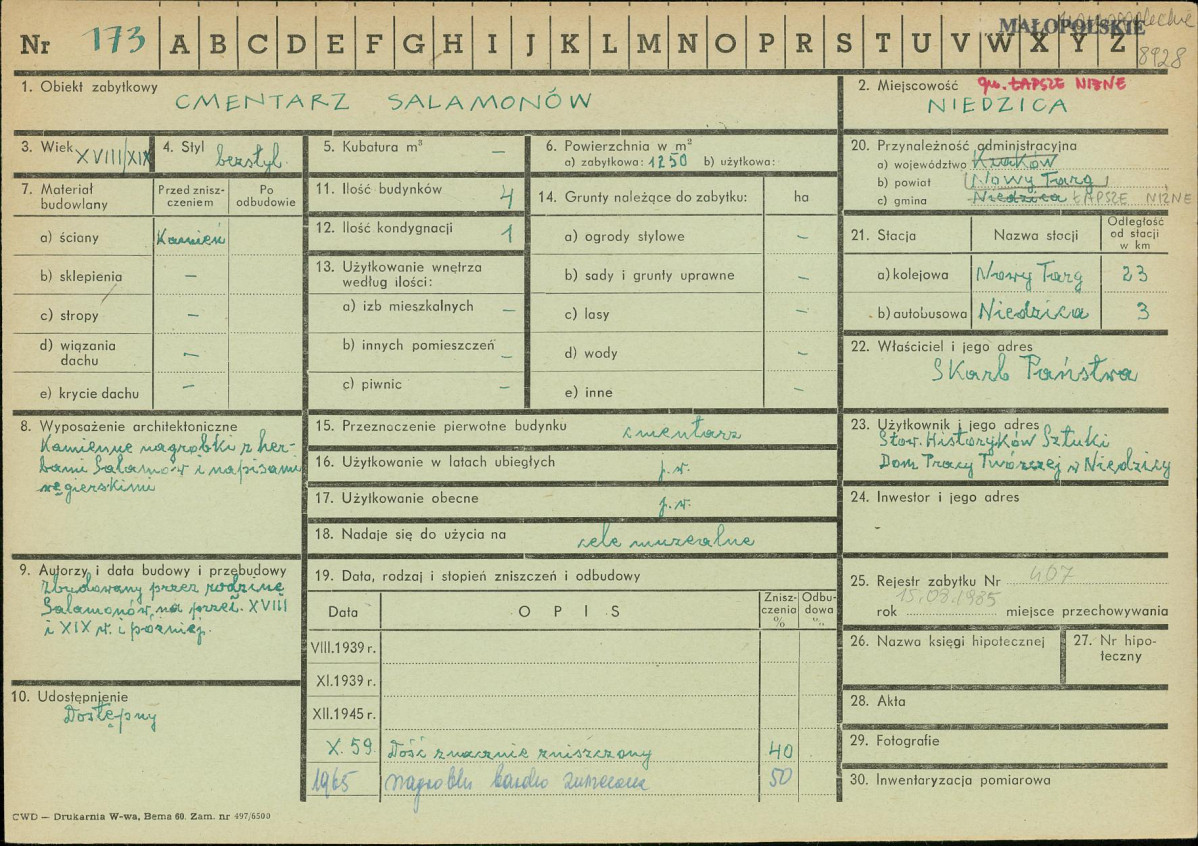 Nr 173 A B C D E F G H I J K L M N O P R S T U V W X Y Z
MAŁOPOLSKIE
8928
1. Obiekt zabytkowy
CMENTARZ SALAMONÓW
2. Miejscowość gm. ŁAPSZE NIŻNE
NIEDZICA
3. Wiek XVIII/XIX
4. Styl bezstyl.
5. Kubatura m³ —
6. Powierzchnia w m²
a) zabytkowa: 1250 b) użytkowa:
7. Materiał budowlany
Przed zniszczeniem
Po odbudowie
a) ściany Kamień
b) sklepienia —
c) stropy —
d) wiązania dachu —
e) krycie dachu —
11. Ilość budynków 4
12. Ilość kondygnacji 1
13. Użytkowanie wnętrza
według ilości:
a) izb mieszkalnych —
b) innych pomieszczeń —
c) piwnic —
14. Grunty należące do zabytku: ha
a) ogrody stylowe —
b) sady i grunty uprawne —
c) lasy —
d) wody —
e) inne —
20. Przynależność administracyjna
a) województwo Kraków
b) powiat Nowy Targ
c) gmina Niedzica ŁAPSZE NIŻNE
21. Stacja
Nazwa stacji
Odległość od stacji w km
a) kolejowa Nowy Targ 23
b) autobusowa Niedzica 3
22. Właściciel i jego adres
Skarb Państwa
8. Wyposażenie architektoniczne
Kamienne nagrobki z her-
bami Salamonów i napisami
węgierskimi
15. Przeznoczenie pierwotne budynku cmentarz
16. Użytkowanie w latach ubiegłych j.w.
17. Użytkowanie obecne j.w.
18. Nadaje się do użycia na cele muzealne
23. Użytkownik i jego adres
Stow. Historyków Sztuki
Dom Pracy Twórczej w Niedzicy
24. Inwestor i jego adres
9. Autorzy i data budowy i przebudowy
Zbudowany przez rodzinę
Salamonów na przeł. XVIII
i XIX w. i później.
10. Udostępnienie
Dostępny
19. Data, rodzaj i stopień zniszczeń i odbudowy
Data
OPIS
Zniszczenia %
Odbudowa %
VIII.1939 r.
XI.1939 r.
XII.1945 r.
X. 59. Dość znacznie zniszczony 40
1965 nagrobki bardzo zniszczone 50
25. Rejestr zabytku Nr 407
15.08.1985
rok miejsce przechowywania
26. Nazwa księgi hipotecznej
27. Nr hipoteczny
28. Akta
29. Fotografie
30. Inwentaryzacja pomiarowa
CWD — Drukarnia W-wa, Bema 60. Zam. nr 497/6500